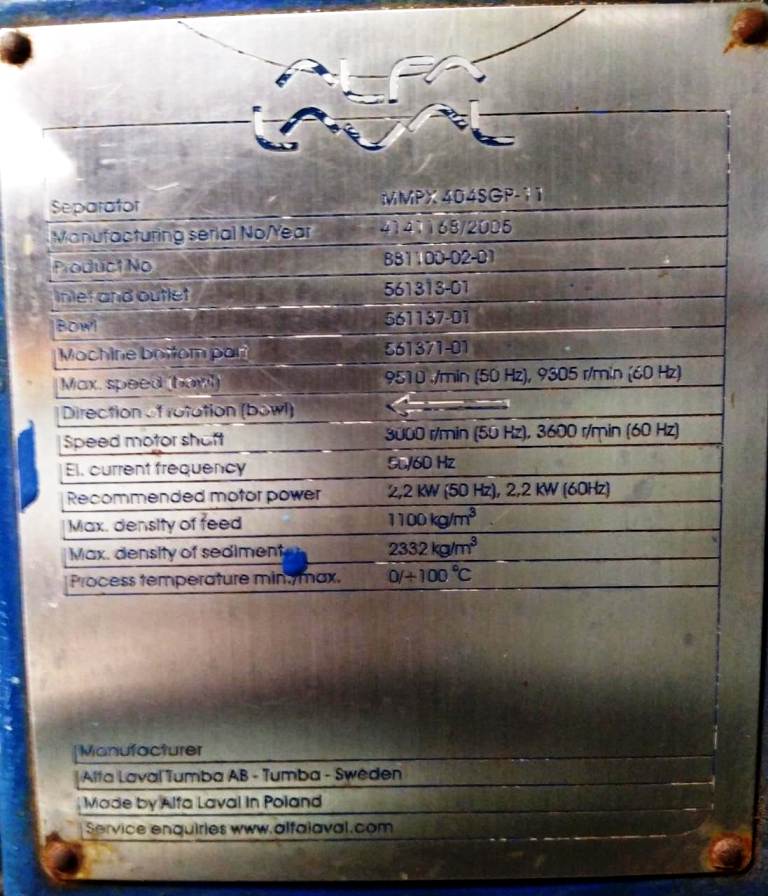 ALFA
LAVAL
Separator MMPX 404SGP-11
Manufacturing serial No/Year 4141168/2005
Product No 881100-02-01
Inlet and outlet 561313-01
Bowl 561137-01
Machine bottom part 561371-01
Max. speed (bowl) 9510 r/min (50 Hz), 9305 r/min (60 Hz)
Direction of rotation (bowl)
Speed motor shaft 3000 r/min (50 Hz), 3600 r/min (60 Hz)
El. current frequency 50/60 Hz
Recommended motor power 2,2 kW (50 Hz), 2,2 kW (60Hz)
Max. density of feed 1100 kg/m³
Max. density of sediment 2332 kg/m³
Process temperature min./max. 0/+100 °C
Manufacturer
Alfa Laval Tumba AB - Tumba - Sweden
Made by Alfa Laval in Poland
Service enquiries www.alfalaval.com